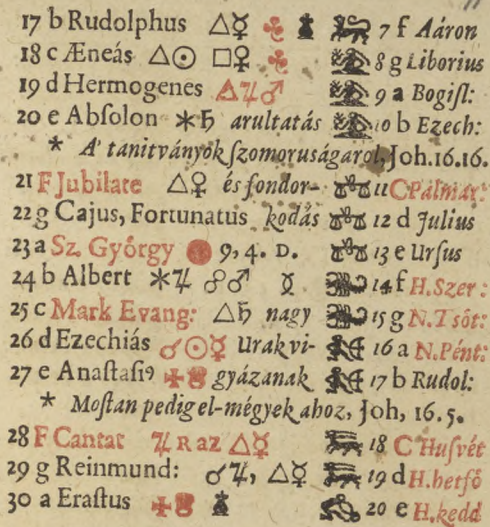 17 b Rudolphus △☿ ♣ 7 f Aáron
18 c Æneás △☉ □♀ ♣ 8 g Liborius
19 d Hermogenes △♃♂ 9 a Bogiſl:
20 e Abſolon ✶♄ arultatás 10 b Ezech:
* A' tanitványok ſzomoruságarol, Joh. 16. 16.
21 F Jubilate △♀ és fondor- 11 C Palmar:
22 g Cajus, Fortunatus kodás 12 d Julius
23 a Sz. György ● 9, 4. D. 13 e Urſus
24 b Albert ✶♃ ☍♂ 14 f H. Szer:
25 c Mark Evang: △♄ nagy 15 g N. Tsöt:
26 d Ezechiás ☌☉☿ Urak vi- 16 a N. Pént:
27 e Anaſtaſiꝰ ✠ gyázanak 17 b Rudol:
* Moſtan pedig el-mégyek ahoz, Joh, 16. 5.
28 F Cantat ♃ R az △☿ 18 C Huſvét
29 g Reinmund: ☌♃, △☿ 19 d H. hetfö
30 a Eraſtus ✠ 20 e H. kedd